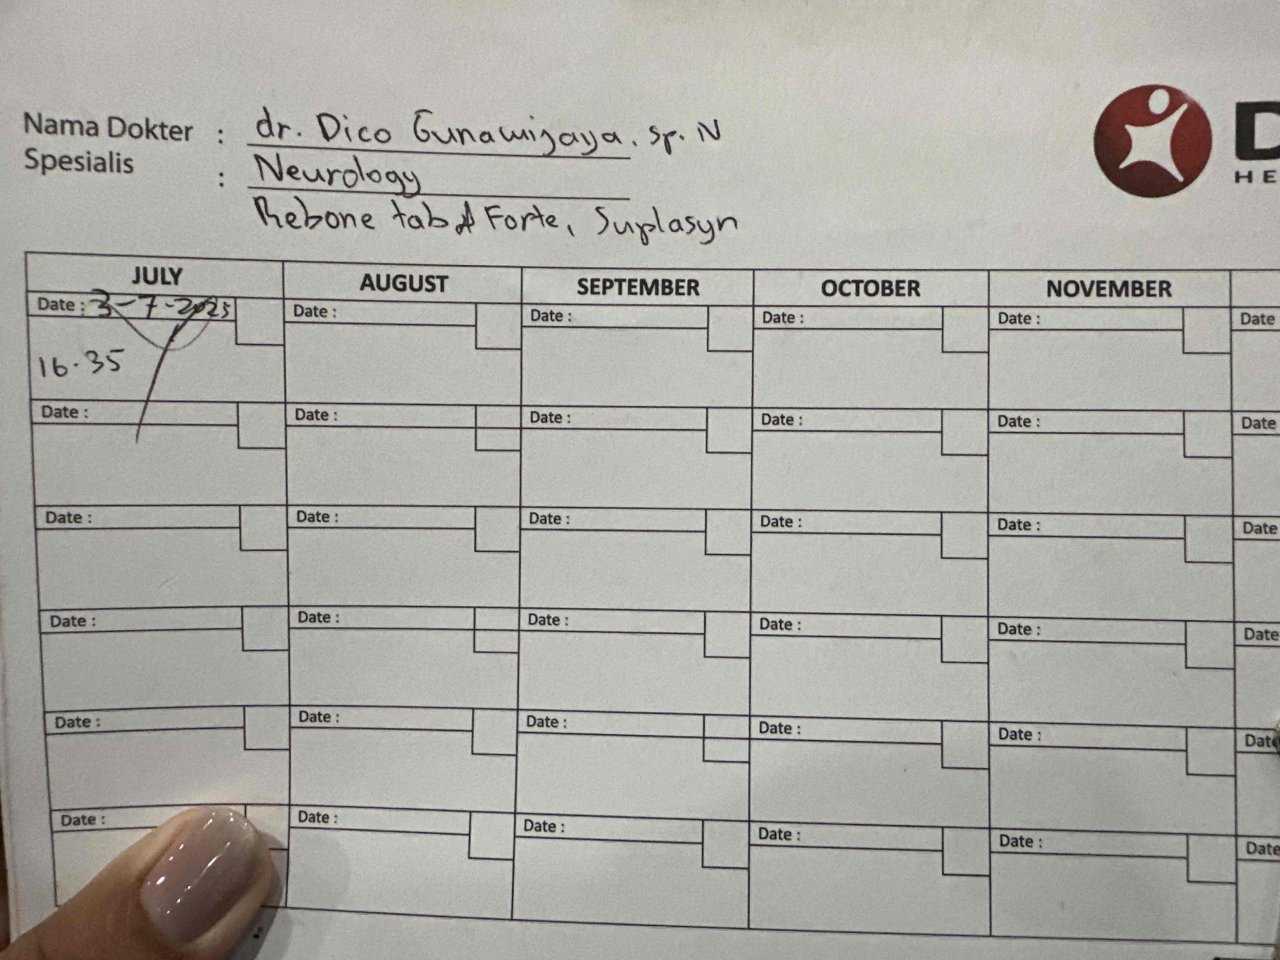 Nama Dokter : dr. Dico Gunawijaya. Sp. N
Spesialis : Neurology
Rebone tab & Forte, Suplasyn
D
HE
JULY AUGUST SEPTEMBER OCTOBER NOVEMBER
Date : 3-7-2025 Date : Date : Date : Date : Date
16.35
Date : Date : Date : Date : Date : Date
Date : Date : Date : Date : Date : Date
Date : Date : Date : Date : Date : Date
Date : Date : Date : Date : Date : Date
Date : Date : Date : Date : Date : Date